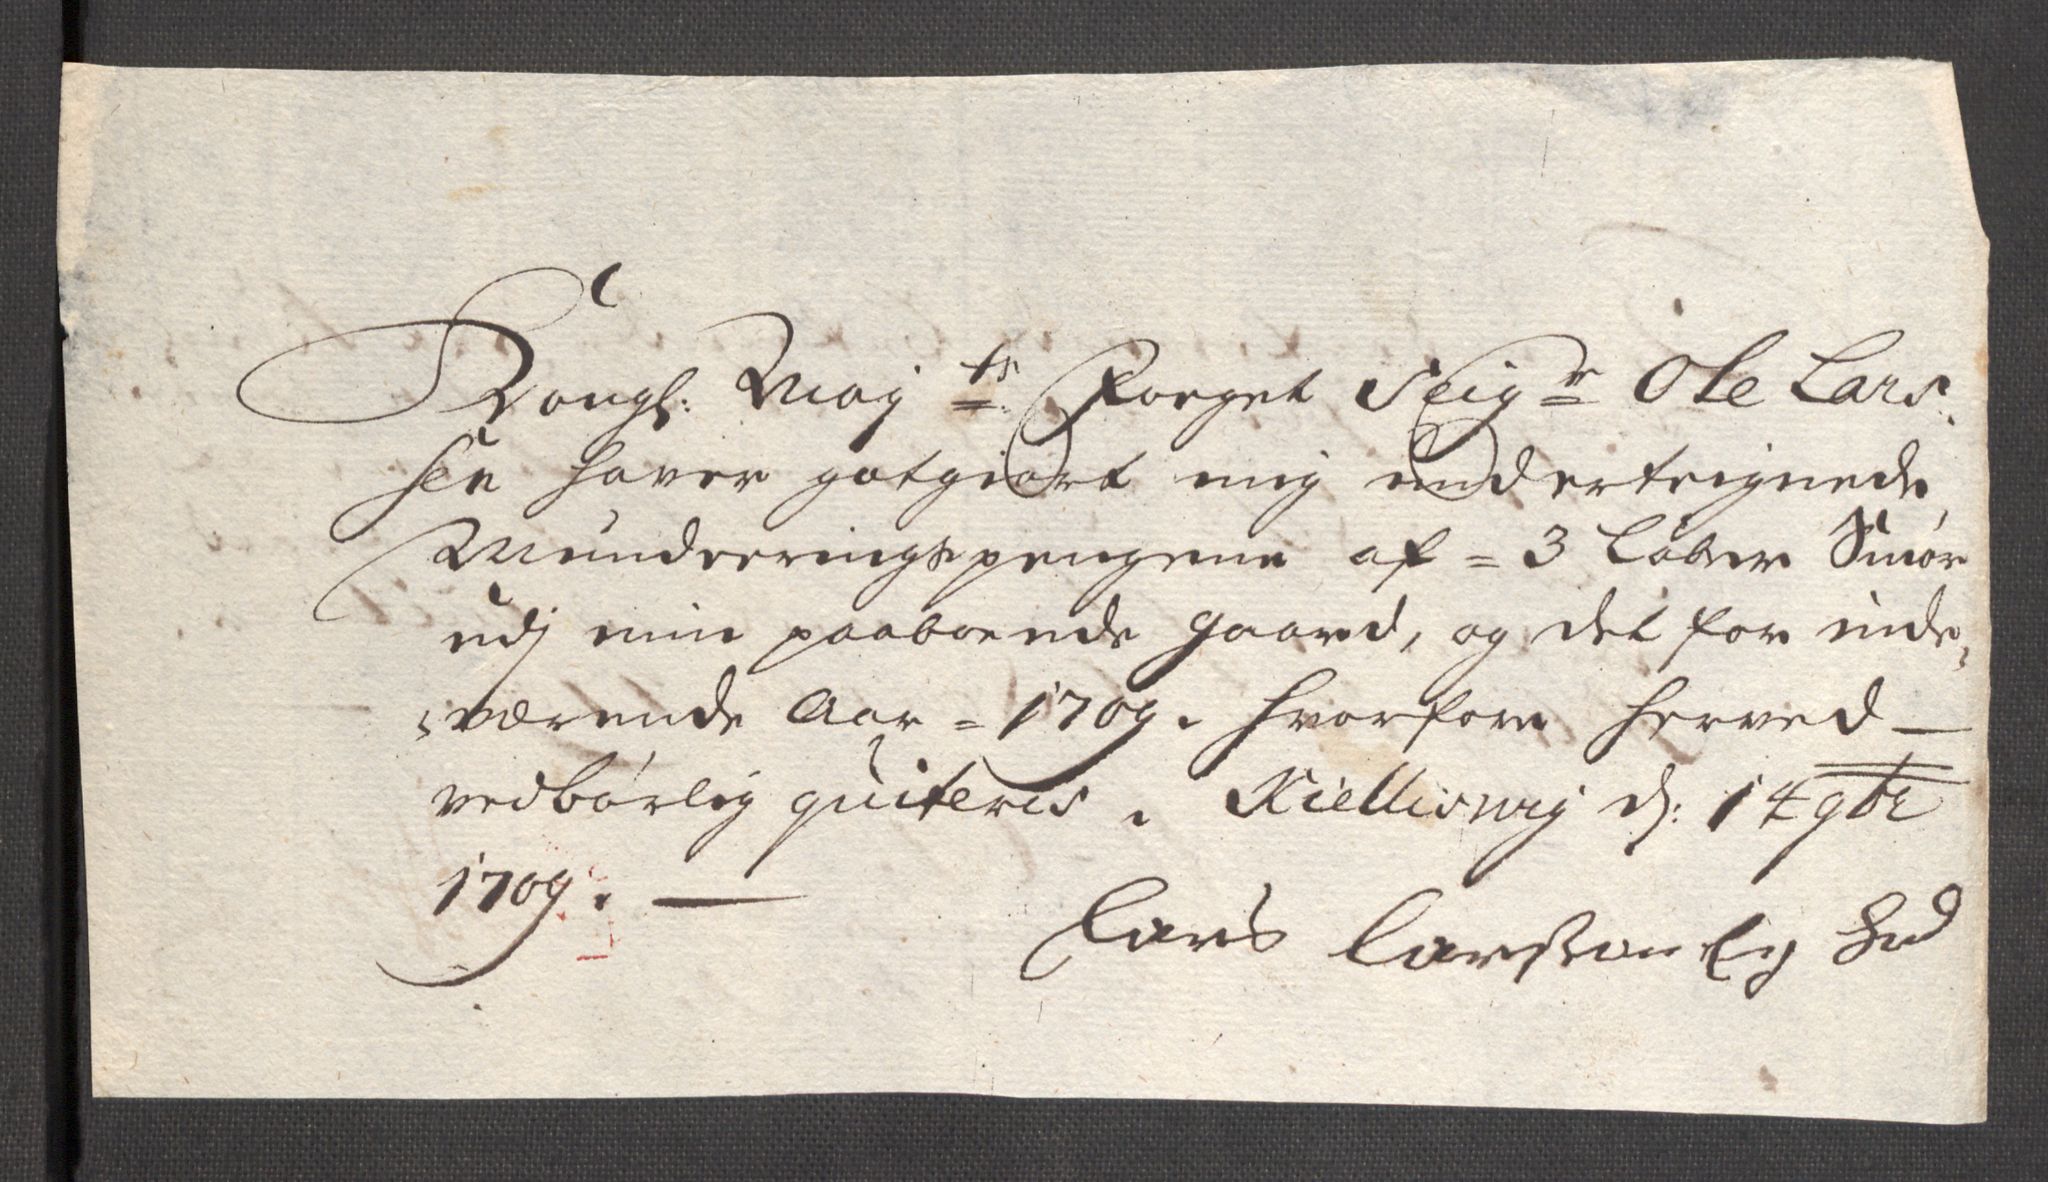 Kongl: Maj ts: Foeget Seigr Ole Lars
sen haver gotgiort mig underteignede
Munderingspengene af = 3 Løber Smør
udj min paaboende gaard, og det for inde-
værende Aar = 1709. hvorfore herved
vedbørlig quiteres. Kielliswig d: 14 9br
1709.
Lars Larsson